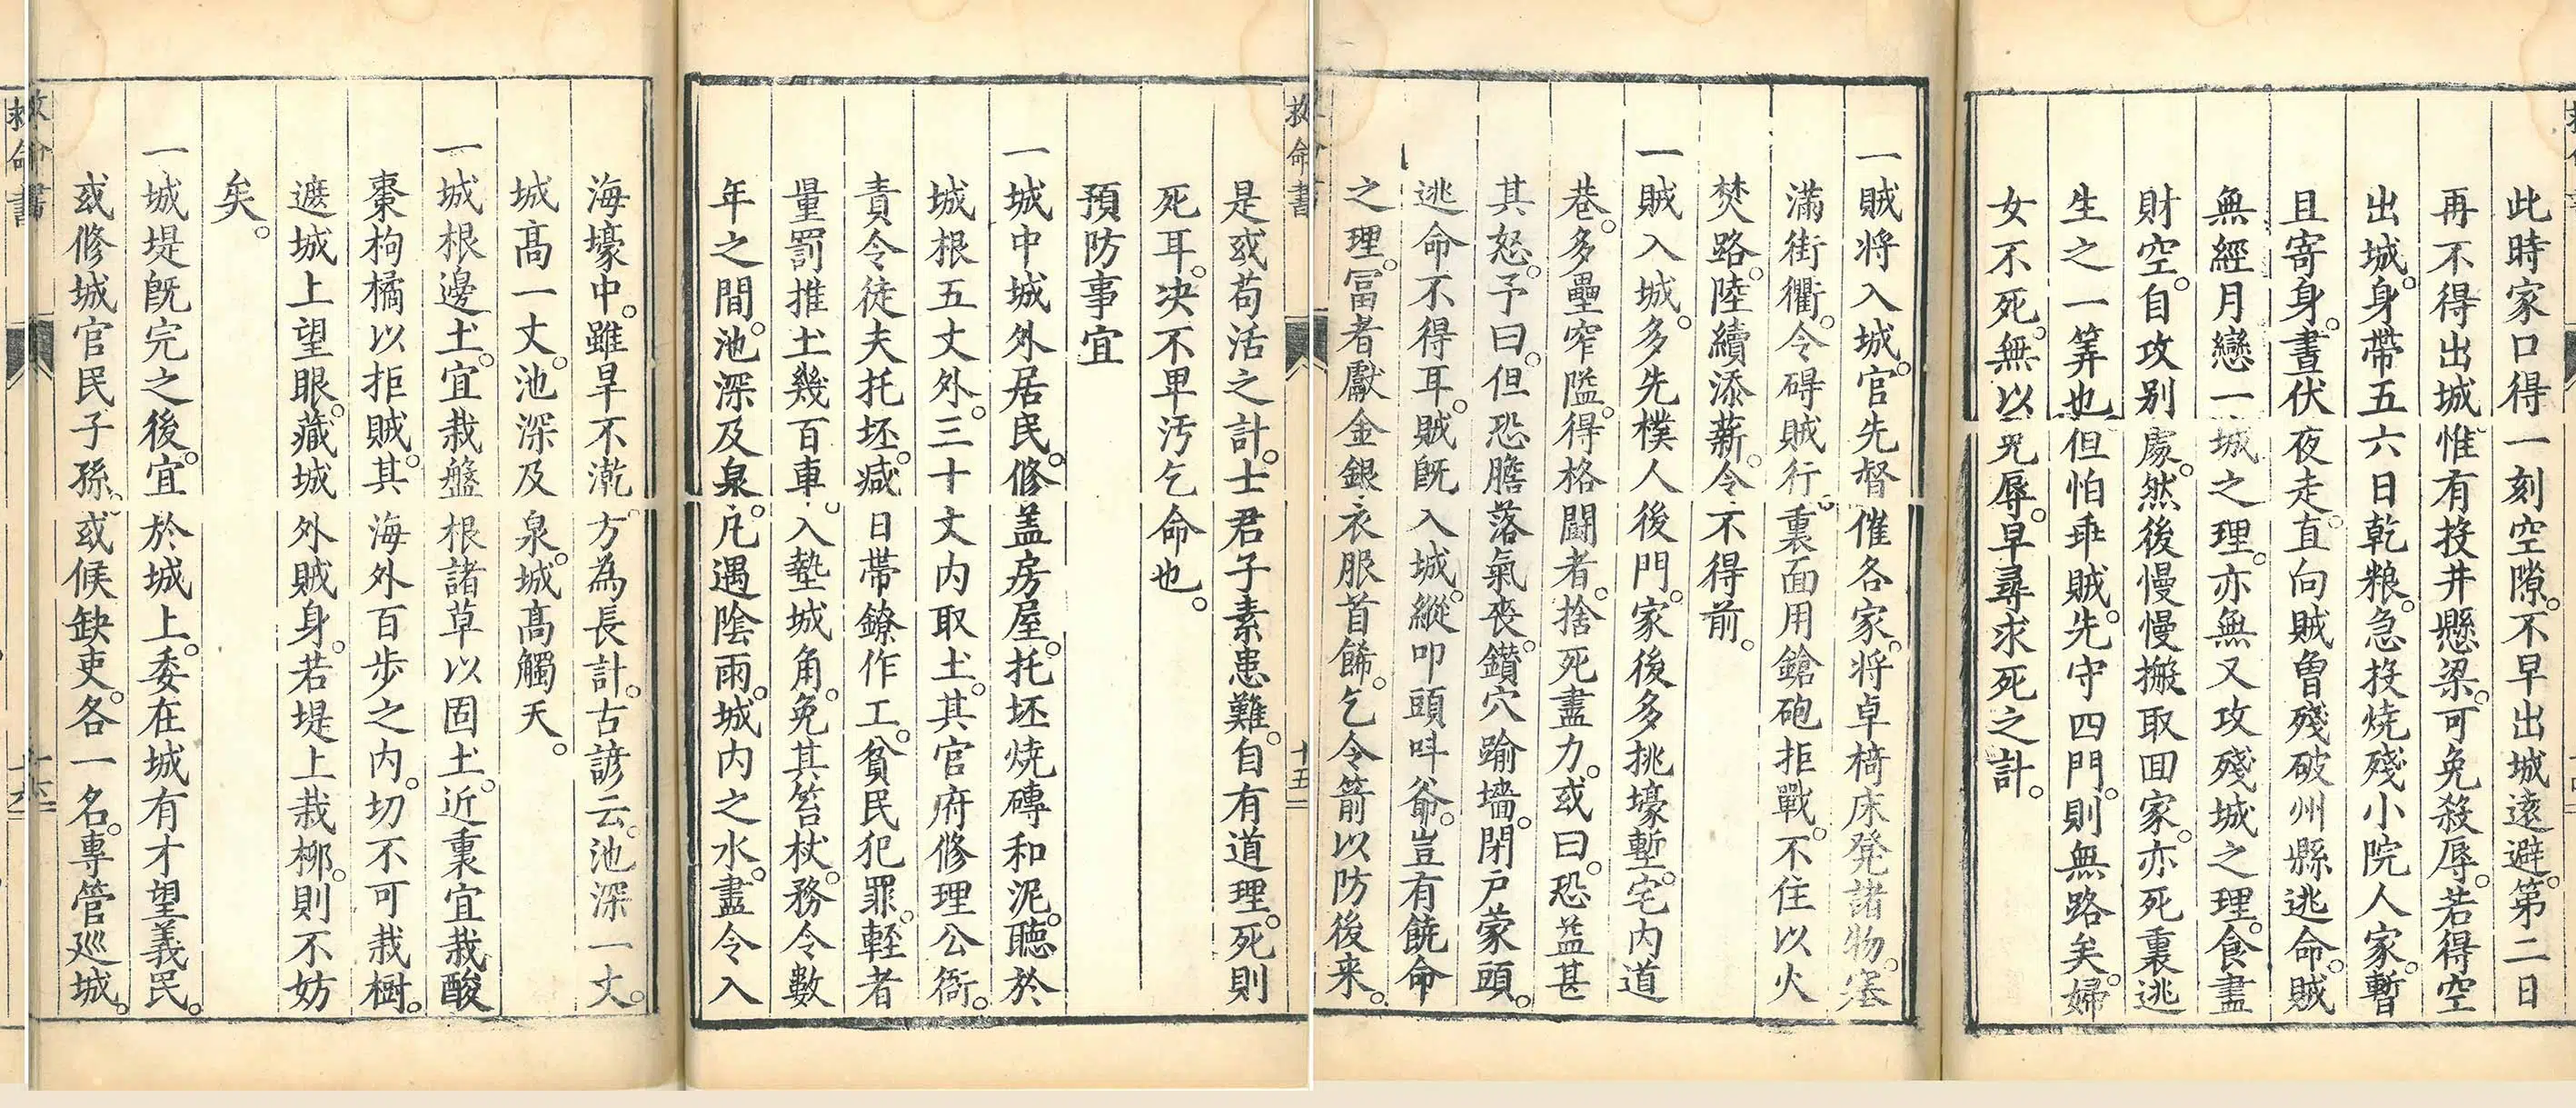 此時家口得一刻空隙不早出城遠避第二日
再不得出城惟有投井懸梁可免殺辱若得空
出城身帶五六日乾粮急投燒殘小院人家暫
且寄身晝伏夜走直向賊曾殘破州縣逃命賊
無經月戀一城之理亦無又攻殘城之理食盡
財空自攻別處然後慢慢搬取回家亦死裏逃
生之一筭也但怕乖賊先守四門則無路矣婦
女不死無以免辱早尋求死之計
一賊將入城官先督催各家將卓椅床凳諸物塞
滿街衢令碍賊行裏面用鎗砲拒戰不住以火
焚路陸續添薪令不得前
一賊入城多先樸人後門家後多挑壕塹宅內道
巷多壘窄隘得格鬪者捨死盡力或曰恐益甚
其怒予曰但恐膽落氣喪鑽穴踰墻閉戶蒙頭
逃命不得耳賊旣入城縱叩頭呌爺豈有饒命
之理冨者獻金銀衣服首餙乞令箭以防後来
救命書
十五
是或苟活之計士君子素患難自有道理死則
死耳决不卑汚乞命也
預防事宜
一城中城外居民修盖房屋托坯燒磚和泥聽於
城根五丈外三十丈內取土其官府修理公衙
責令徒夫托坯減日帶鐐作工貧民犯罪輕者
量罰推土幾百車入墊城角免其笞杖務令數
年之間池深及泉凡遇陰雨城內之水盡令入
海壕中雖旱不漧方為長計古諺云池深一丈
城高一丈池深及泉城高觸天
一城根邊土宜栽盤根諸草以固土近裏宜栽酸
棗枸橘以拒賊其海外百步之內切不可栽樹
遮城上望眼藏城外賊身若堤上栽柳則不妨
矣
一城堤旣完之後宜於城上委在城有才望義民
或修城官民子孫或候缺吏各一名專管巡城
救命書
十六